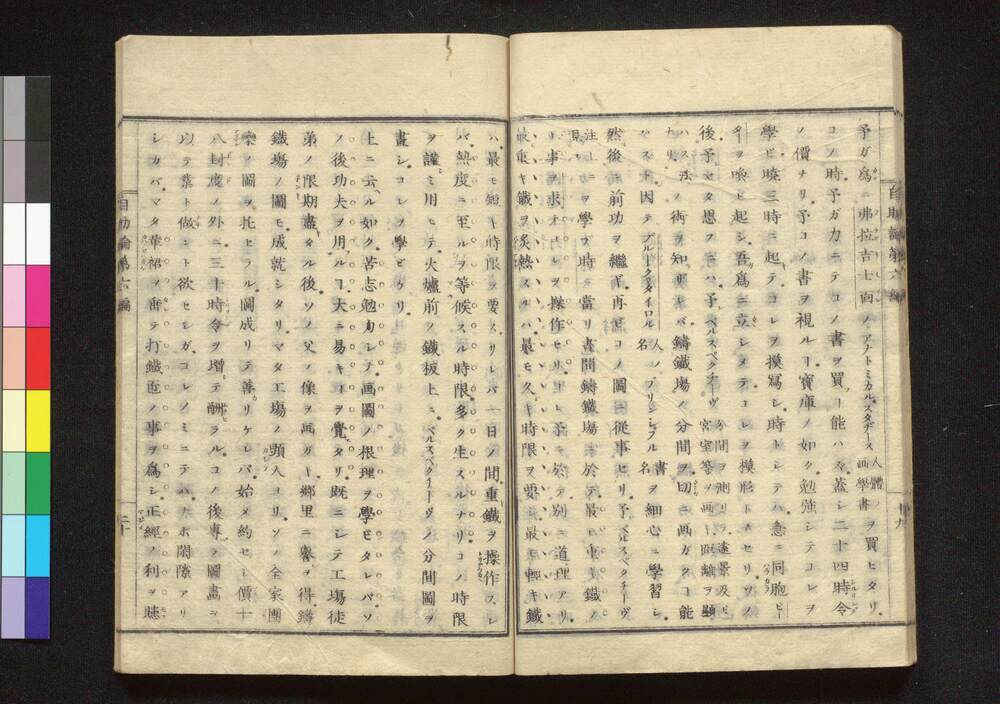 予ガ為ニ弗拉吉士面ノアナトミカル、スタデース 人體ノ画學書ヲ買ヒタリ
コノ時予ガ力ニテコノ書ヲ買フ能ハズ蓋シ二十四時令
ノ價ナリ予コノ書ヲ視ルヿ寶庫ノ如ク勉強シテコレヲ
學ビ曉三時ニ起テコレヲ摸寫シ時トシテハ急ニ同胞ピー
ターヲ喚ビ起シ吾為ニ立シメテコレヲ模形トナセリソノ
後予マタ想フニハ予ペルスペクチーヴ 分間ヲ測リ遠景及ビ宮室等ヲ画
ノ術ヲ知ザレバ鑄鐵場ノ分間ヲ切ニ画ガクヿ能
ハズ因テブルークタイロル 人名ノプリンシプル 書名ヲ細心ニ學習シ
然後ニ前功ヲ繼ギ再ビコノ圖ニ從事セリ予ペルスペクチーヴ
ヲ學ブ時ニ當リ晝間鑄鐵場ニ於テ最モ重キ鐵ノ
事ヲ求テコレヲ操作セリ予ニ於テ別ニ道理アリ
最重キ鐵ヲ炙熱スルハ最モ久キ時限ヲ要シ最モ輕キ鐵
ハ最モ短キ時限ヲ要スサレバ一日ノ間重鐵ヲ操作スレ
バ熱度ニ至ルヲ等候スル時限多ク生スルナリコノ時限
ヲ謹ミ用ヒテ火爐前ノ鐵板上ニペルスペクチーヴノ分間圖ヲ
畫シコレヲ學ビタリ
上ニ云ル如ク苦志勉力シテ画圖ノ根理ヲ學ビタレバソ
ノ後功夫ヲ用ルヿ大ニ易キヿヲ覺タリ既ニシテ工塲徒
弟ノ限期盡タル後ソノ父ノ像ヲ画ガキ鄉里ニ譽ヲ得鑄
鐵塲ノ圖モ成就シタリマタ工塲ノ頭人ヨリソノ全家團
欒ノ圖ヲ托ヒラル圖成リテ善カリケレバ始メ約セシ價十
八封度ノ外ニ三十時令ヲ增テ酬ラルコノ後專ラ圖畫ヲ
以テ業ト做ント欲セシガコレノミニテハナホ閑隙アリ
シカバマタ車裙ノ畵テ打鐵匠ノ事ヲ為シ正經ノ利ヲ賺
自助論第六編
十九
自助論第六編
二十